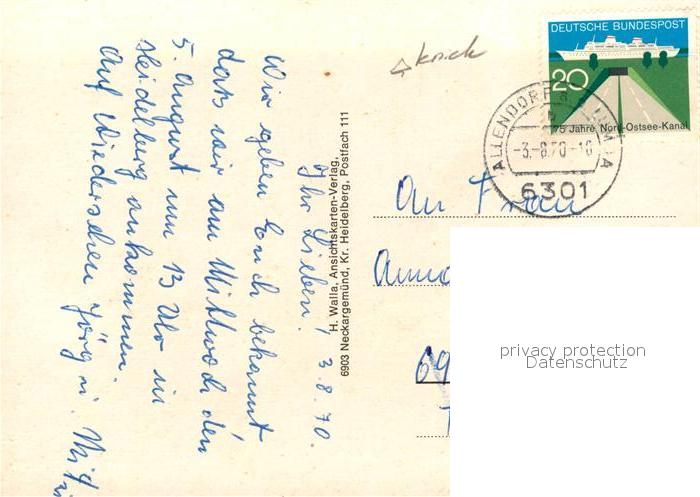 Ihr Lieben! 3.8.70.
Wir geben Euch bekannt
daß wir am Mittwoch den
5. August um 13 Uhr in
Heidelberg ankommen.
Auf Wiedersehen Jörg u.
H. Walla, Ansichtskarten-Verlag,
6903 Neckargemünd, Kr. Heidelberg, Postfach 111
knick
DEUTSCHE BUNDESPOST
20
75 Jahre Nord-Ostsee-Kanal
ALLENDORF
-3.-8.70-16
A
6301
An Frau
69
privacy protection
Datenschutz